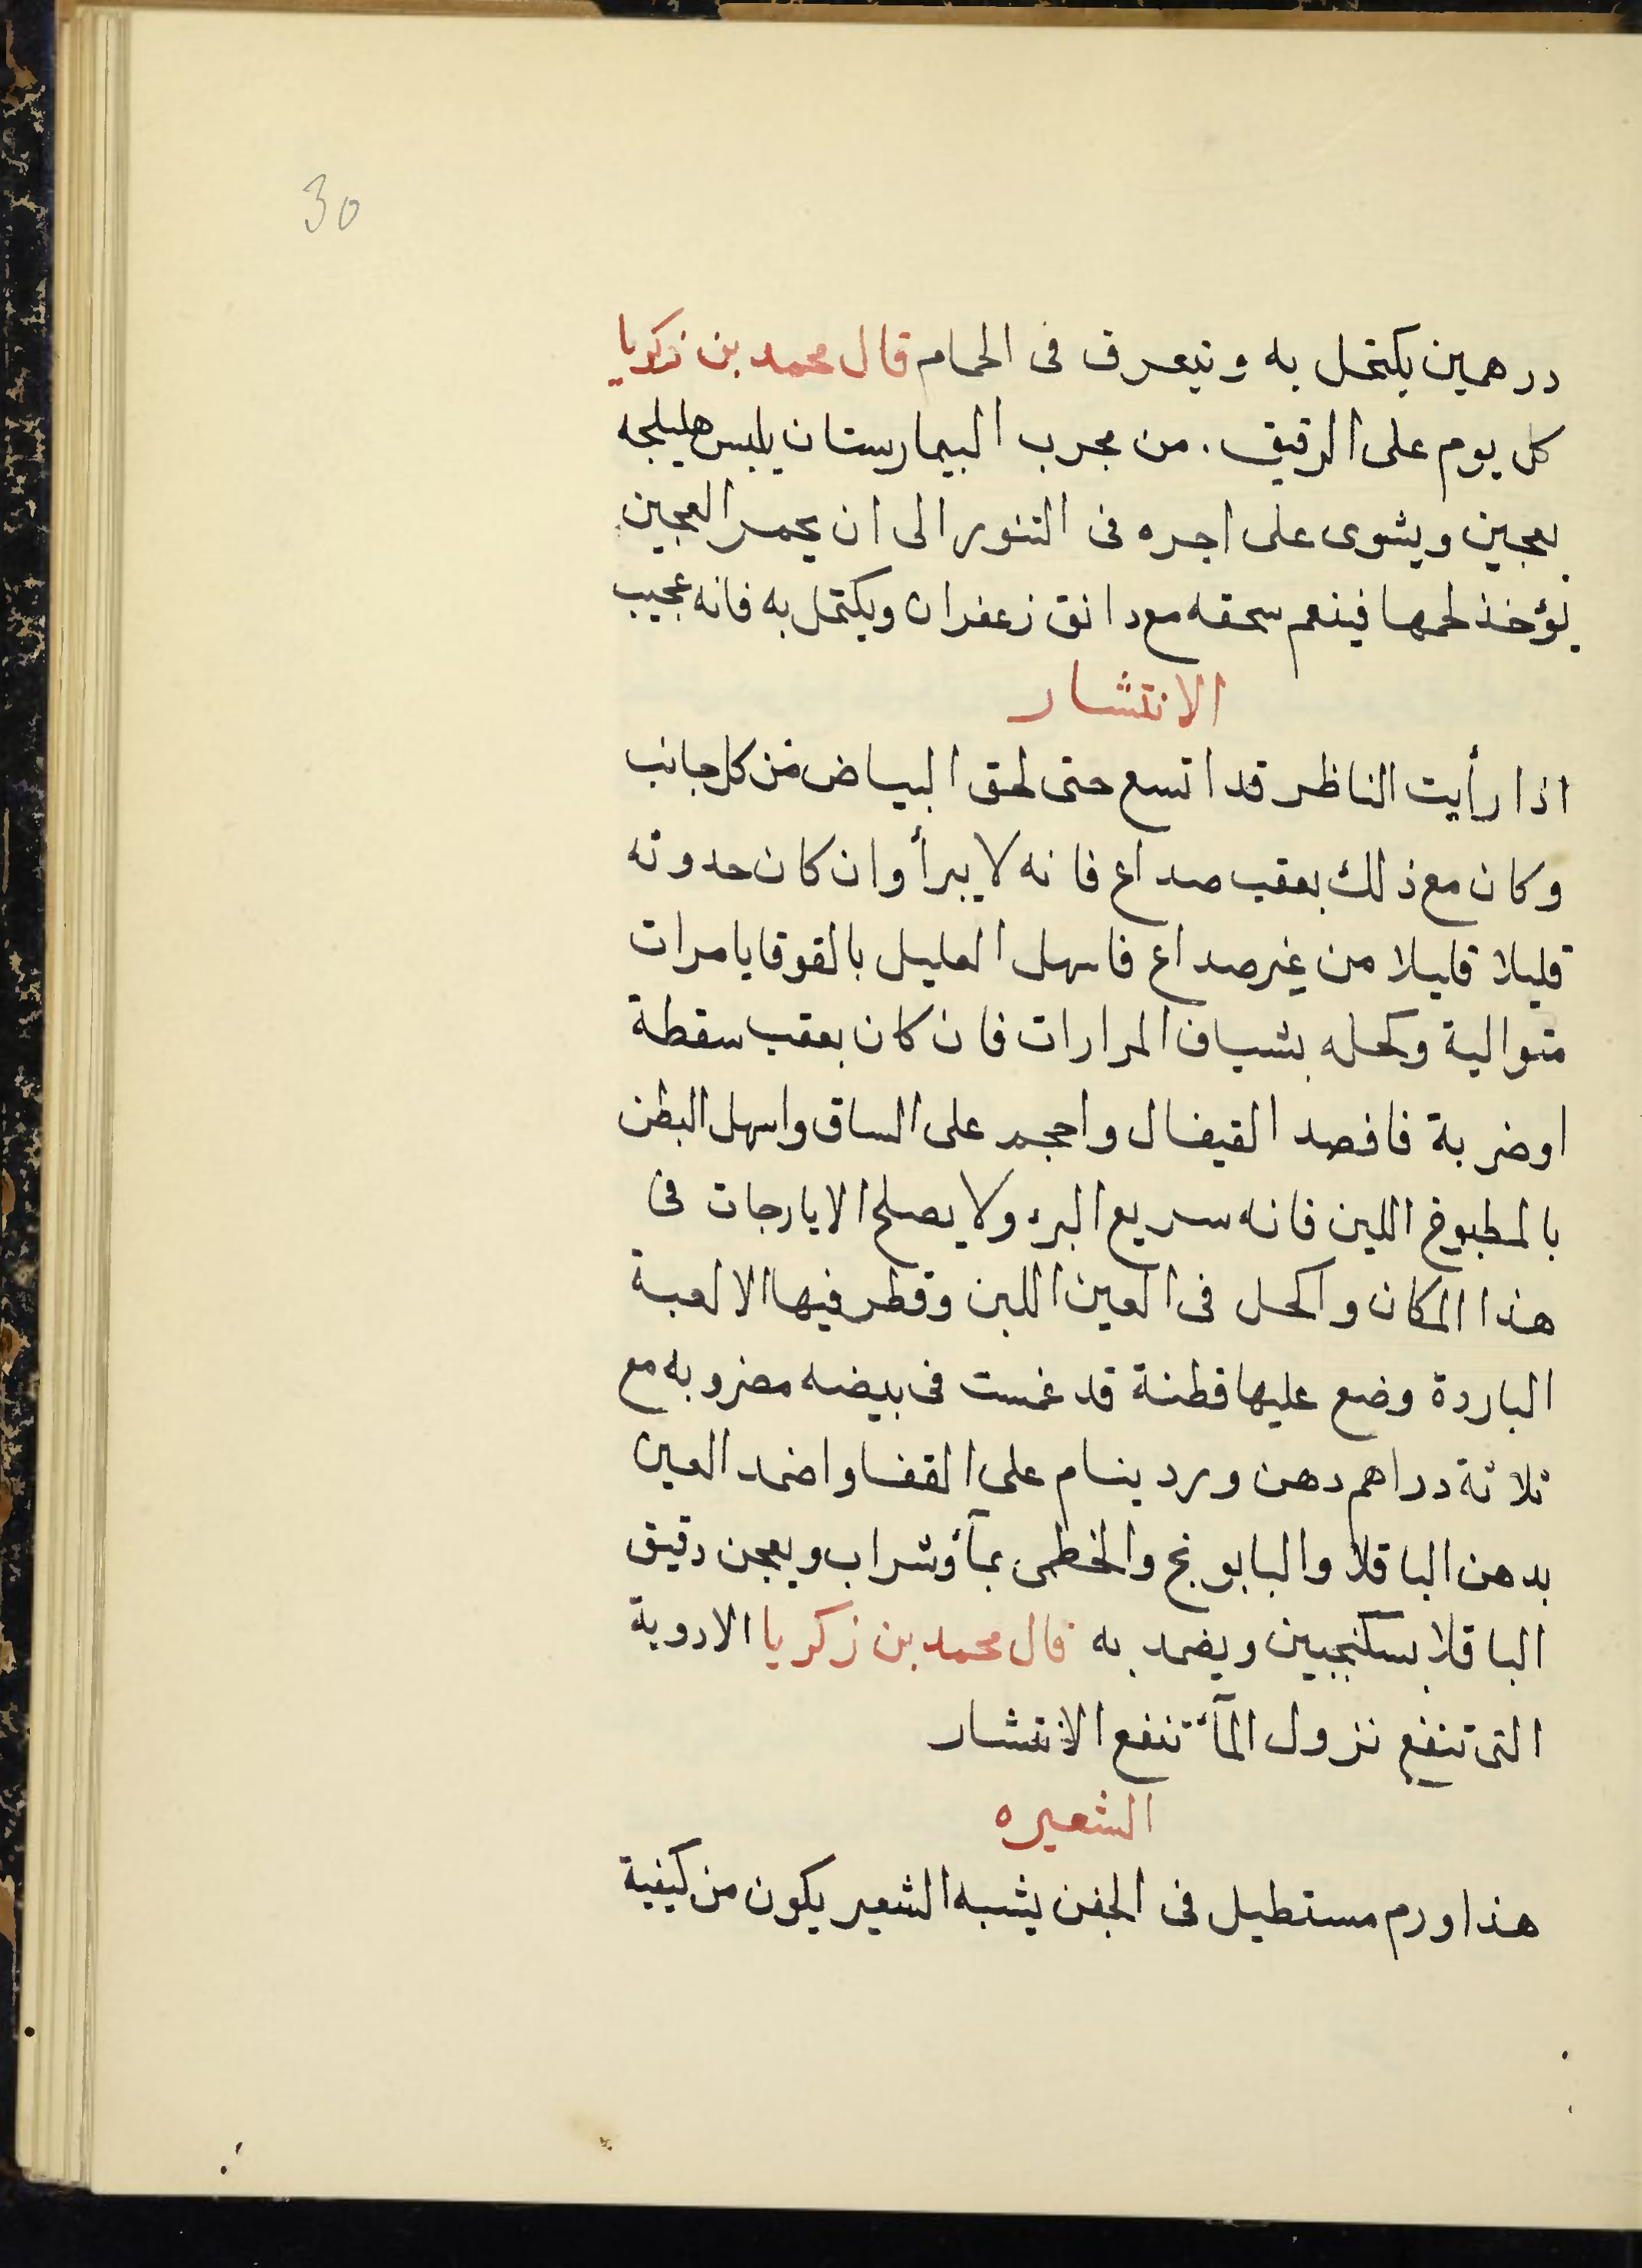 30
درهمين يكتحل به ويتعرق فى الحمام قال محمد بن زكريا
كل يوم على الرقيق . من مجرب البيمارستان يلبس هليلجه
بعجين ويشوى على اجره فى التنور الى ان يحمر العجين
يؤخذ لحمها فينعم سحقه مع دانق زعفران ويكتحل به فانه عجيب
الانتشار
اذا رأيت الناظر قد اتسع حتى لحق البياض من كل جانب
وكان مع ذلك بعقب صداع فانه لا يبرأ وان كان حدوثه
قليلا قليلا من غير صداع فاسهل العليل بالقوقايا مرات
متوالية وكحله بشياف المرارات فان كان بعقب سقطة
او ضربة فافصد القيفال واحجم على الساق واسهل البطن
بالمطبوخ اللين فانه سريع البرء ولا يصلح الايارجات فى
هذا المكان واكحل فى العين اللبن وقطر فيها الالعبة
الباردة وضع عليها قطنة قد غمست فى بيضه مضروبه مع
ثلاثة دراهم دهن ورد ينام على القفا واضمد العين
بدهن الباقلا والبابونج والخطمى بمآء وشراب ويعجن دقيق
الباقلا بسكنجبين ويضمد به قال محمد بن زكريا الادوية
التى تنفع نزول المآء تنفع الانتشار
الشعيره
هذا ورم مستطيل فى الجفن يشبه الشعير يكون من كيفية